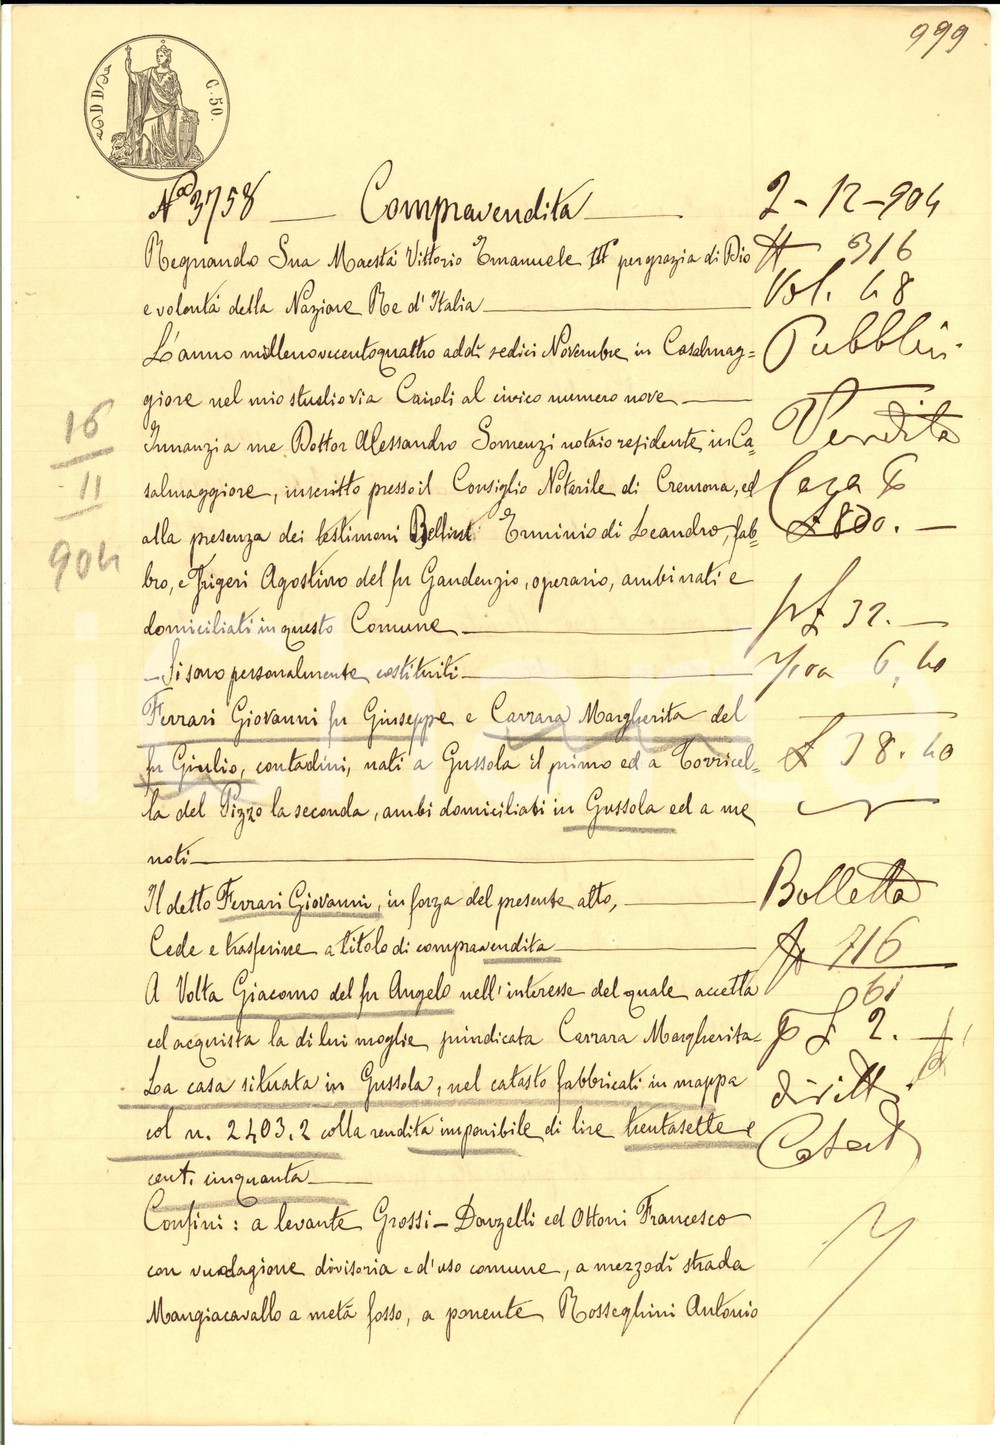 999
C. 50.
No 3758 Compravendita
Regnando Sua Maestá Vittorio Emanuele III per grazia di Dio
e volontá della Nazione Re d'Italia
L'anno millenovecentoquattro addí sedici Novembre in Casalmag=
giore nel mio studio via Cairoli al civico numero nove
Innanzi a me Dottor Alessandro Somenzi notaio residente in Ca=
salmaggiore, inscritto presso il Consiglio Notarile di Cremona, ed
alla presenza dei testimoni Erminio di Leandro, fab=
bro, e Frigeri Agostino del fu Gaudenzio, operaio, ambi nati e
domiciliati in questo Comune
Si sono personalmente costituiti
Ferrari Giovanni fu Giuseppe e Carrara Margherita del
fu Giulio, contadini, nati a Gussola il primo ed a Torricel=
la del Pizzo la seconda, ambi domiciliati in Gussola ed a me
noti
Il detto Ferrari Giovanni, in forza del presente atto,
Cede e trasferisce a titolo di compravendita
A Volta Giacomo del fu Angelo nell'interesse del quale accetta
ed acquista la di lui moglie preindicata Carrara Margherita
La casa situata in Gussola, nel catasto fabbricati in mappa
col n. 2403.2 colla rendita imponibile di lire trentasette e
cent. cinquanta
Confini: a levante Grossi-Donzelli ed Ottoni Francesco
con divisoria e d'uso comune, a mezzodí strada
Mangiacavallo a metá fosso, a ponente Rosseghini Antonio
2-12-904
316
Vol. 48
Pubblici
Vendita
Casa p
£ 800.
£ 32.
6,40
£ 38.40
Bolletta
716
£ 2.
diritti
Catast
16
11
904